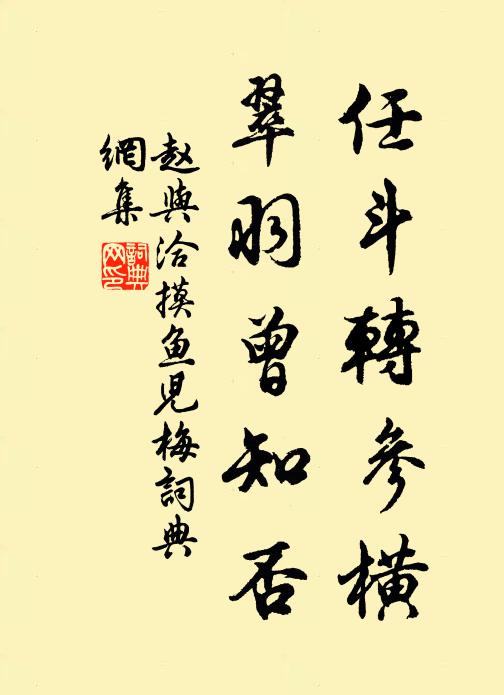 任斗轉參橫
翠羽曾知否
赵與洽摸鱼児梅詞典
網集
詞典
网印